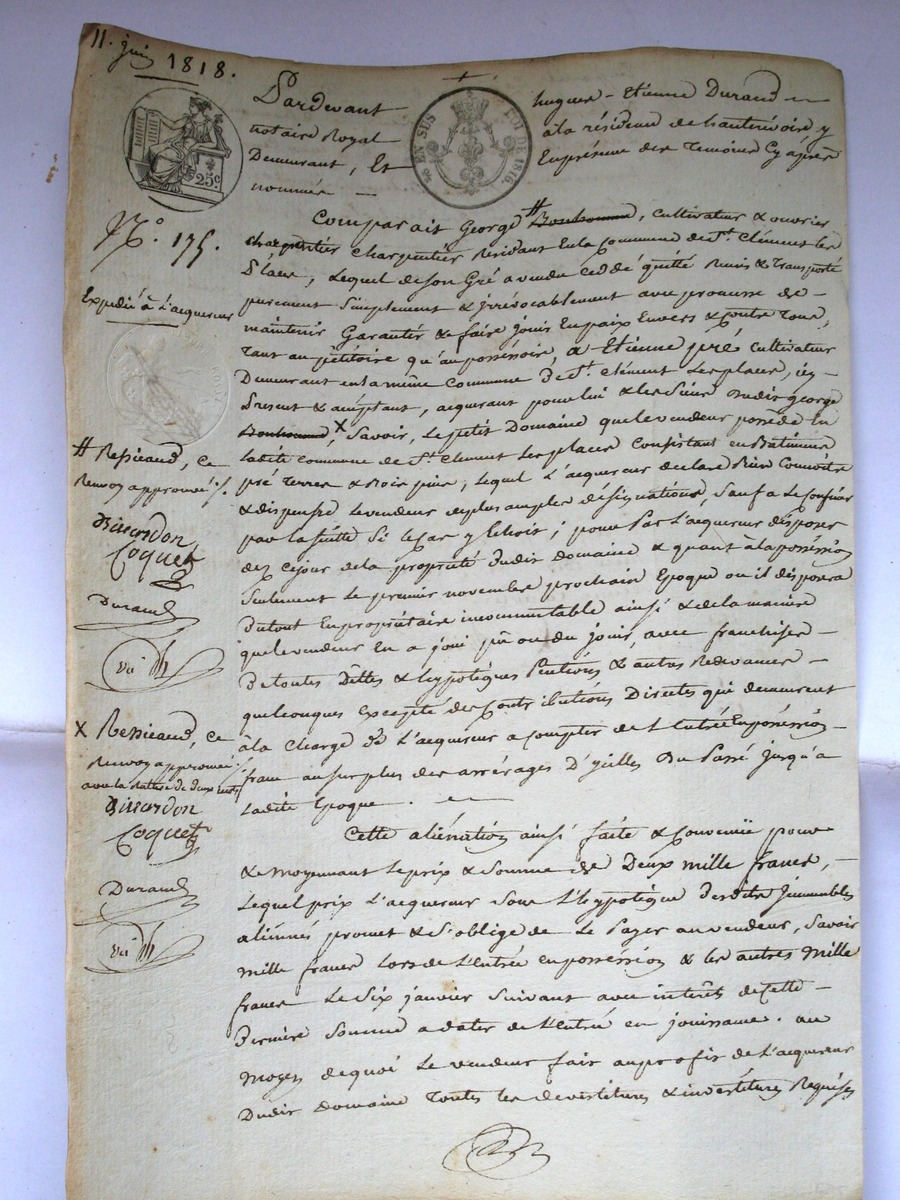 11. juin 1818.
Pardevant hugues - Etienne Durand
notaire Royal à la résidence de hauterivoire y
Demeurant, Et En présence des Temoins Cy après
nommés
25c.
EN SUS LOI DE 1816.
N.º 175.
Expedié à l'acquereur
Comparait George # Bonhomme, cultivateur & ouvrier
charpentier charpentier Résidant En la commune de St. Clément les
places, Lequel de son Gré a vendu ceddé quitté Remis & Transporté
purement Simplement & irrévocablement avec promesse de
maintenir Garantir & faire jouir En paix Envers & contre Tous,
Tant au pétitoire qu'au possessoire, a Etienne pré cultivateur
Demeurant en la même Commune De St. Clément Les places, icy
Present & acceptant, acquerant pour lui & les siens dudit george
Bonhomme, X Savoir, Le petit Domaine que le vendeur possède En
Ladite commune de St. Clement Les places Consistant en Bâtimens
pré Terres & Bois pins, Lequel L'acquereur declare Bien Connoitre
& dispense Le vendeur de plus amples désignations, Sauf a Le Confiner
par la suitte Si Le Cas y Echoit; pour par L'acquereur disposer
dez cejour de la propriété dudit domaine & quant à la poséssion
Seulement Le premier novembre prochain Epoque ou il disposera
du tout En propriétaire incommutable ainsi & de la manière
que le vendeur En a joui pû ou dû jouir, avec franchises
De toutes Dettes & hypotèques Pentions & autres Redevances
quelconques Excepté des Contributions Directes qui demeurent
à la charge de L'acquereur a compter de L'Entrée En poséssion
franc au surplus des arrérages D'ycelles Du Passé jusqu'a
Ladite Epoque.
# Ressicaud, Ce
Renvoy approuvé /.
Coquet
Durand
X Ressicaud, Ce
Renvoy approuvé
avec la Rature de deux mots
Coquet
Durand
Cette aliénation ainsi faite & Convenüe pour
& moyennant Le prix & Somme de Deux mille francs,
Lequel prix L'acquereur Sous L'hypotèque Desdits Immeubles
aliénés promet & S'oblige de Le Payer au vendeur, Savoir
mille francs Lors de L'Entrée en poséssion & les autres mille
francs Le Six janvier Suivant avec intérêts de Cette
Dernière Somme a dater de L'Entrée en jouissance. au
moyen de quoi Le vendeur fait au profit de L'acquereur
Dudit domaine Toutes les devestitures & investitures Requises